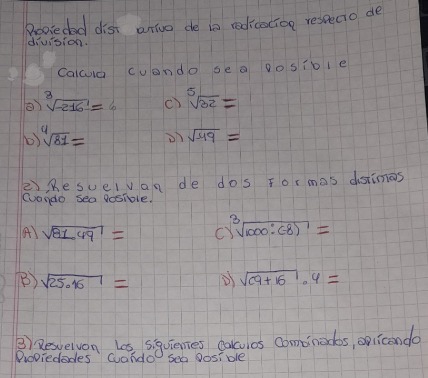 Propiedad distributiva de la radicación respecto de
división.
Calcula cuando sea posible
a) ∛-216 = 6 c) ⁵√32 =
b) ⁴√81 = D) √-49 =
2) Resuelvan de dos formas distintas
Cuando sea posible.
A) √81.49 = C) ∛1000:(-8) =
B) √25.16 = D) √(9+16).4 =
3) Resuelvan los siguientes calculos combinados, aplicando
propiedades cuando sea posible